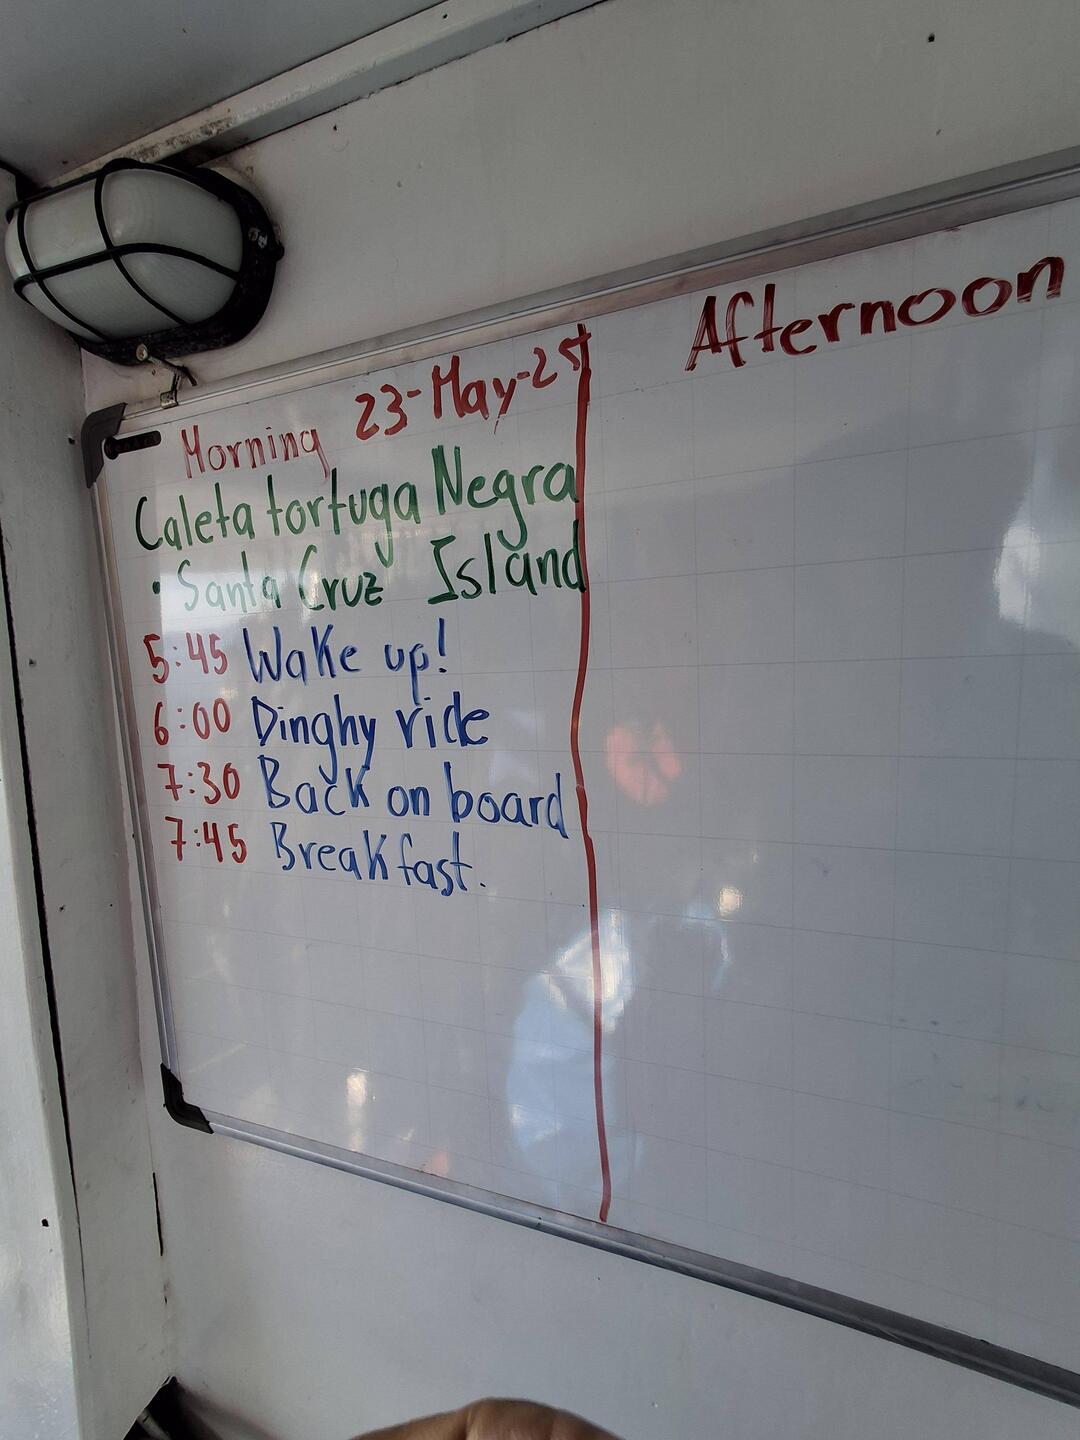 Morning 23-May-25
Caleta tortuga Negra
• Santa Cruz Island
5:45 Wake up!
6:00 Dinghy ride
7:30 Back on board
7:45 Breakfast.
Afternoon